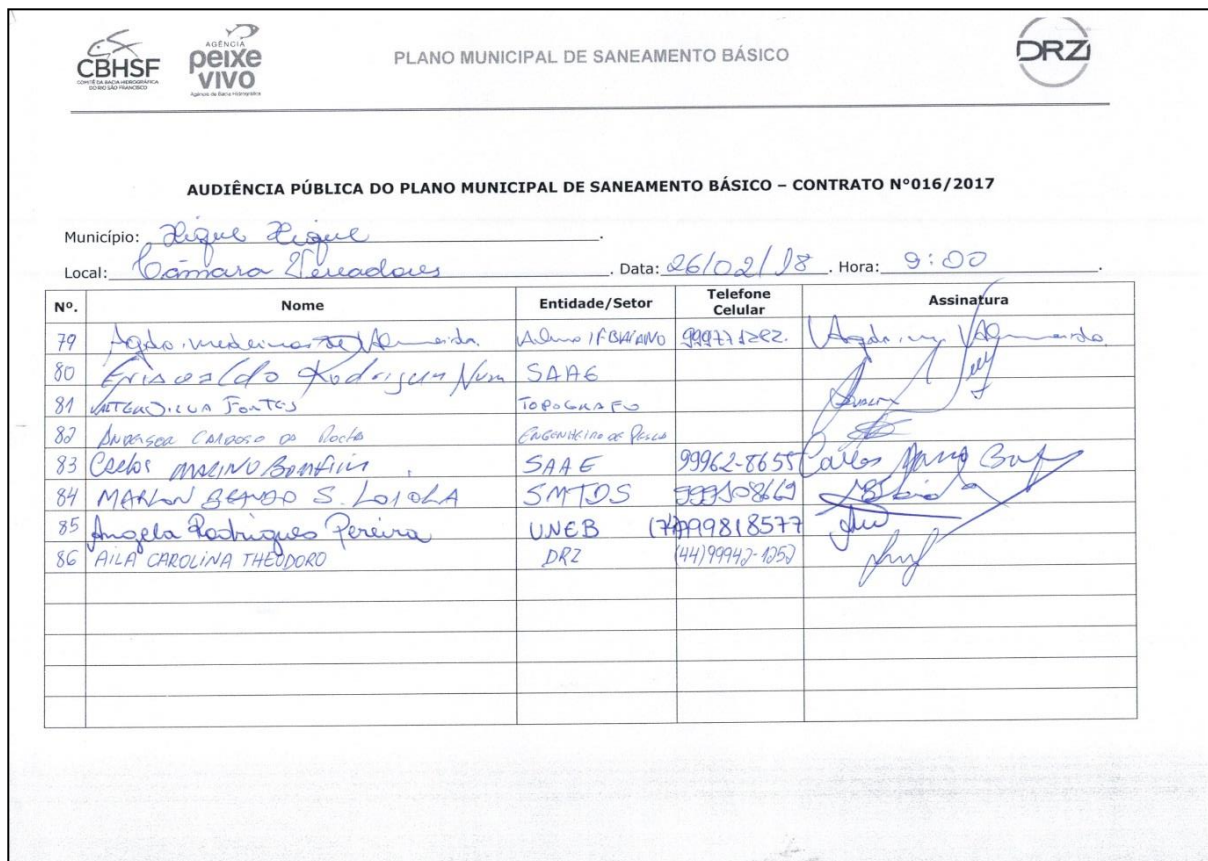 CBHSF
COMITÊ DA BACIA HIDROGRÁFICA
DO RIO SÃO FRANCISCO
AGÊNCIA
peixe
vivo
Agência de Bacia Hidrográfica
PLANO MUNICIPAL DE SANEAMENTO BÁSICO
DRZ
AUDIÊNCIA PÚBLICA DO PLANO MUNICIPAL DE SANEAMENTO BÁSICO – CONTRATO Nº016/2017
Município: Xique Xique.
Local: Câmara Vereadores. Data: 26/02/18. Hora: 9:00.
Nº. Nome Entidade/Setor Telefone Celular Assinatura
79 Almeida Aluno IFBAIANO
80 Rodrigues SAAE
81 FONTES TOPOGRAFO
82 ANDERSON CARDOSO DA Rocha ENGENHEIRO DE PESCA
83 Carlos MARINO BomFim SAAE 99962-8655 Carlos
84 MARLON S. LOIOLA SMTDS
85 Angela Rodrigues Pereira UNEB (74)999818577
86 AILA CAROLINA THEODORO DRZ (44)99942-1252